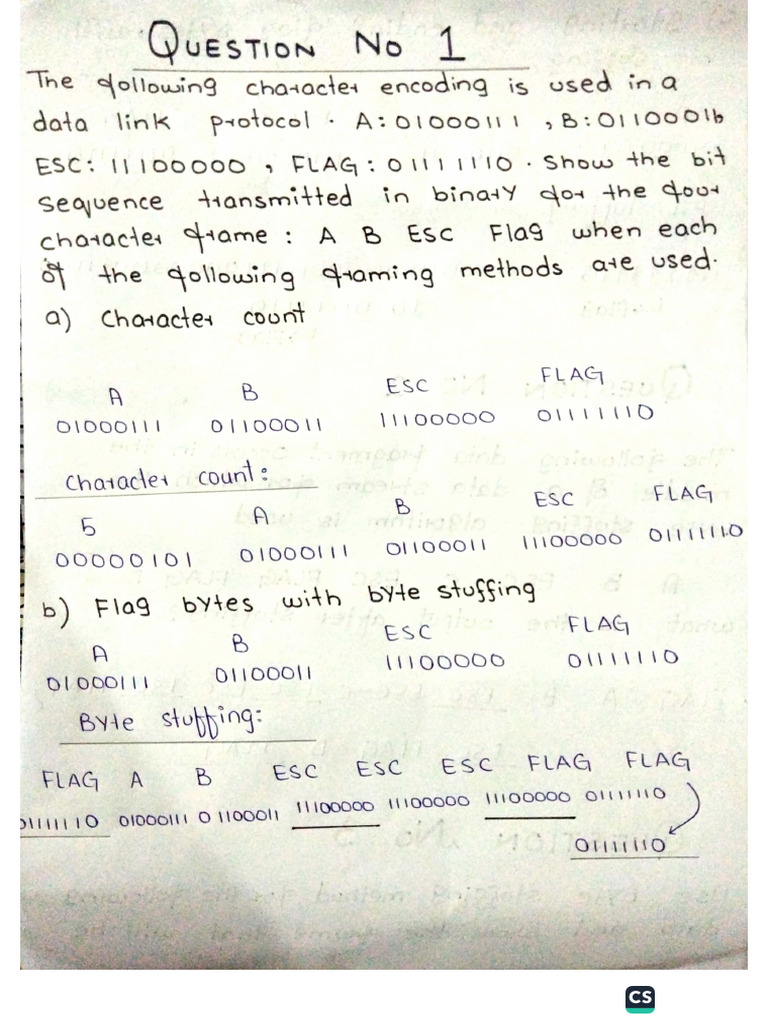 QUESTION No 1
The following character encoding is used in a
data link protocol. A:01000111 , B:0110001b
ESC: 11100000 , FLAG : 01111110 . Show the bit
sequence transmitted in binary for the four
character frame : A B Esc Flag when each
of the following framing methods are used.
a) Character count
A B ESC FLAG
01000111 01100011 11100000 01111110
Character count:
5 A B ESC FLAG
00000101 01000111 01100011 11100000 01111110
b) Flag bytes with byte stuffing
A B ESC FLAG
01000111 01100011 11100000 01111110
Byte stuffing:
FLAG A B ESC ESC ESC FLAG FLAG
01111110 01000111 01100011 11100000 11100000 11100000 01111110
01111110
CS